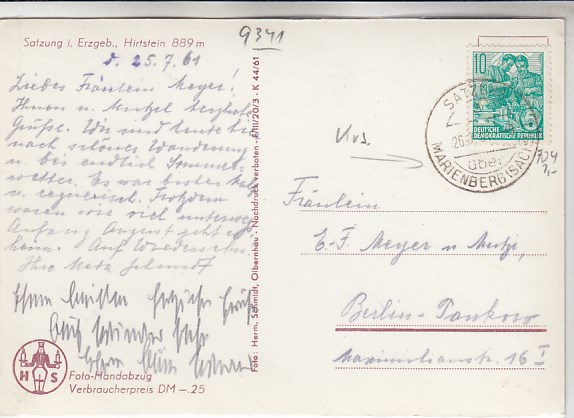 Satzung i. Erzgeb., Hirtstein 889 m
d. 25.7.61
Liebes Fräulein Meyer!
Ihnen u. Mutzel herzliche
Grüße. Wir sind heute hier
nach schöner Wanderung
u. bei endlich Sommer-
wetter. Es war bisher kalt
u. regnerisch. Trotzdem
waren wir viel unterwegs
Anfang August geht es
heim. Auf Wiedersehn
Ihre Meta Schmidt
Foto-Handabzug
Verbraucherpreis DM —.25
H S
Foto: Herm. Schmidt, Olbernhau - Nachdruck verboten - E/III/20/3 - K 44/61
9341
Vks.
10
DEUTSCHE
DEMOKRATISCHE REPUBLIK
SATZUNG
über
MARIENBERG (SACHS)
704
Fräulein
E.-F. Meyer u Mutzi,
Berlin-Pankow
Maximilianstr. 16 I